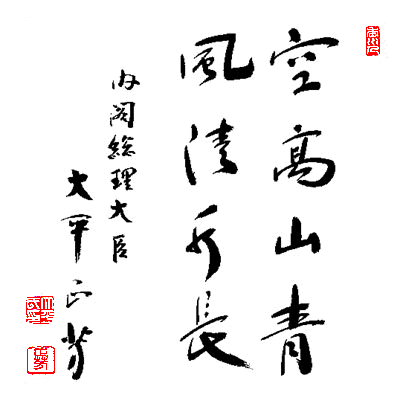 空高山青
風清水長
内閣総理大臣
大平正芳